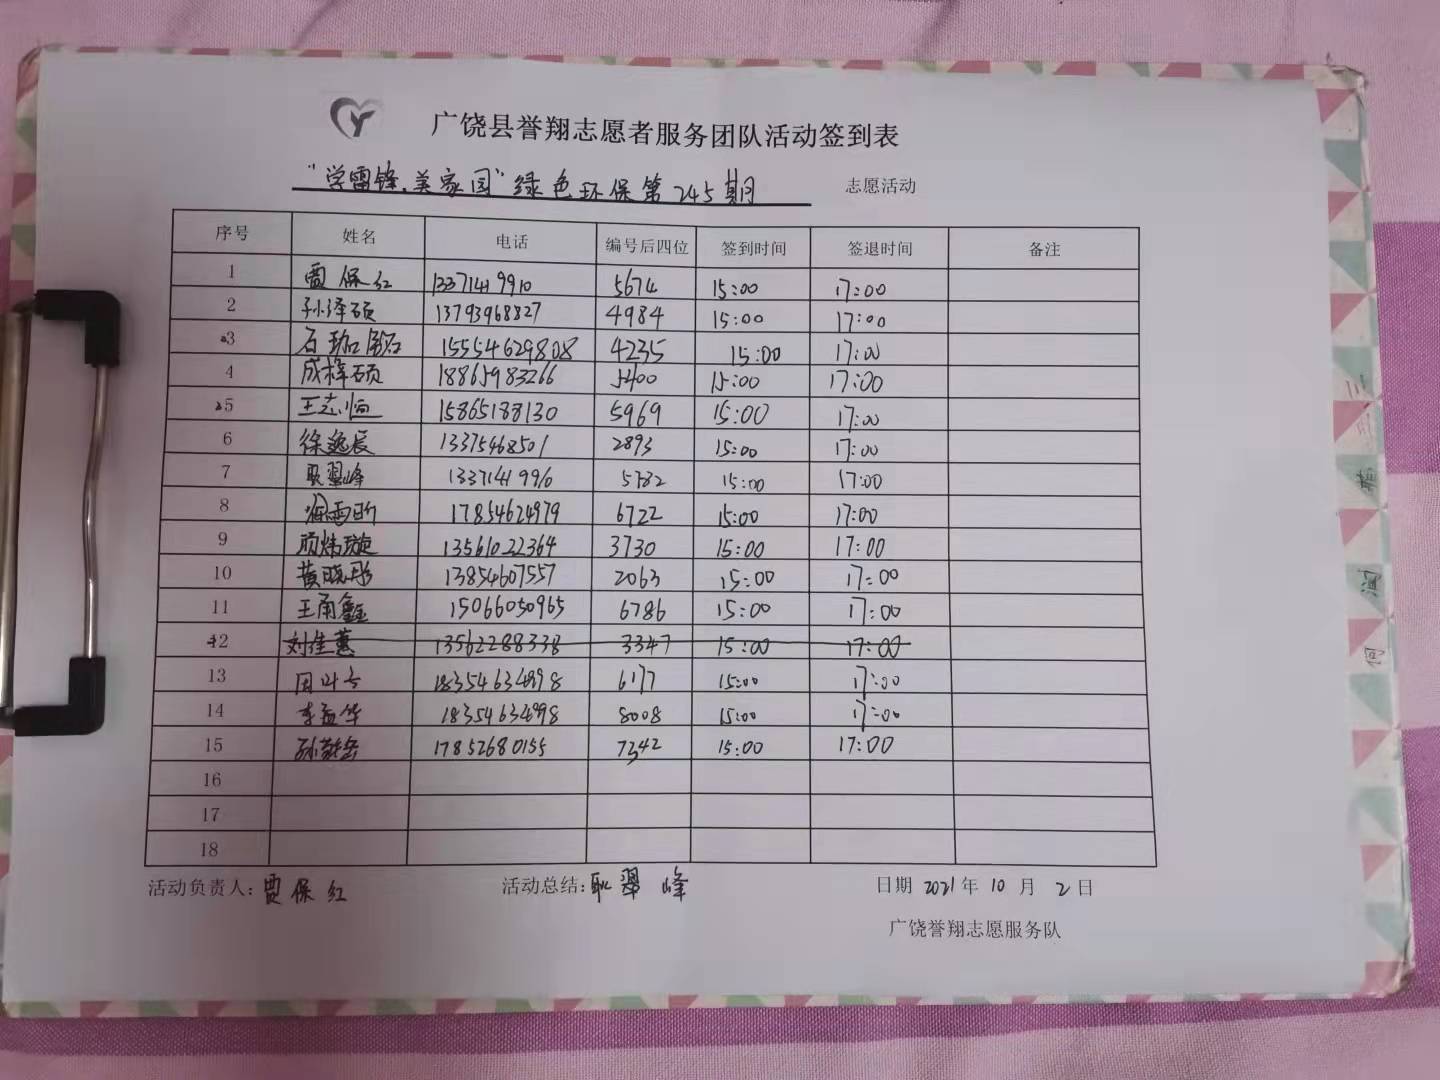 广饶县誉翔志愿者服务团队活动签到表
"学雷锋.美家园"绿色环保第245期 志愿活动
序号 姓名 电话 编号后四位 签到时间 签退时间 备注
1 贾保红 13371419910 5674 15:00 17:00
2 孙泽硕 13793968827 4984 15:00 17:00
3 石 15554629808 4235 15:00 17:00
4 成梓硕 18865983266 5400 15:00 17:00
5 王志恒 15865188130 5969 15:00 17:00
6 徐逸辰 13375468501 2893 15:00 17:00
7 耿翠峰 13371419916 5782 15:00 17:00
8 17854624979 6722 15:00 17:00
9 13561022364 3730 15:00 17:00
10 黄晓彤 13854607557 2063 15:00 17:00
11 王雨鑫 15066050965 6786 15:00 17:00
12 刘佳蕙 13562288338 3347 15:00 17:00
13 18354634898 6177 15:00 17:00
14 李益华 18354634898 8008 15:00 17:00
15 17852680155 7342 15:00 17:00
16
17
18
活动负责人:贾保红 活动总结:耿翠峰 日期 2021年10月2日
广饶誉翔志愿服务队